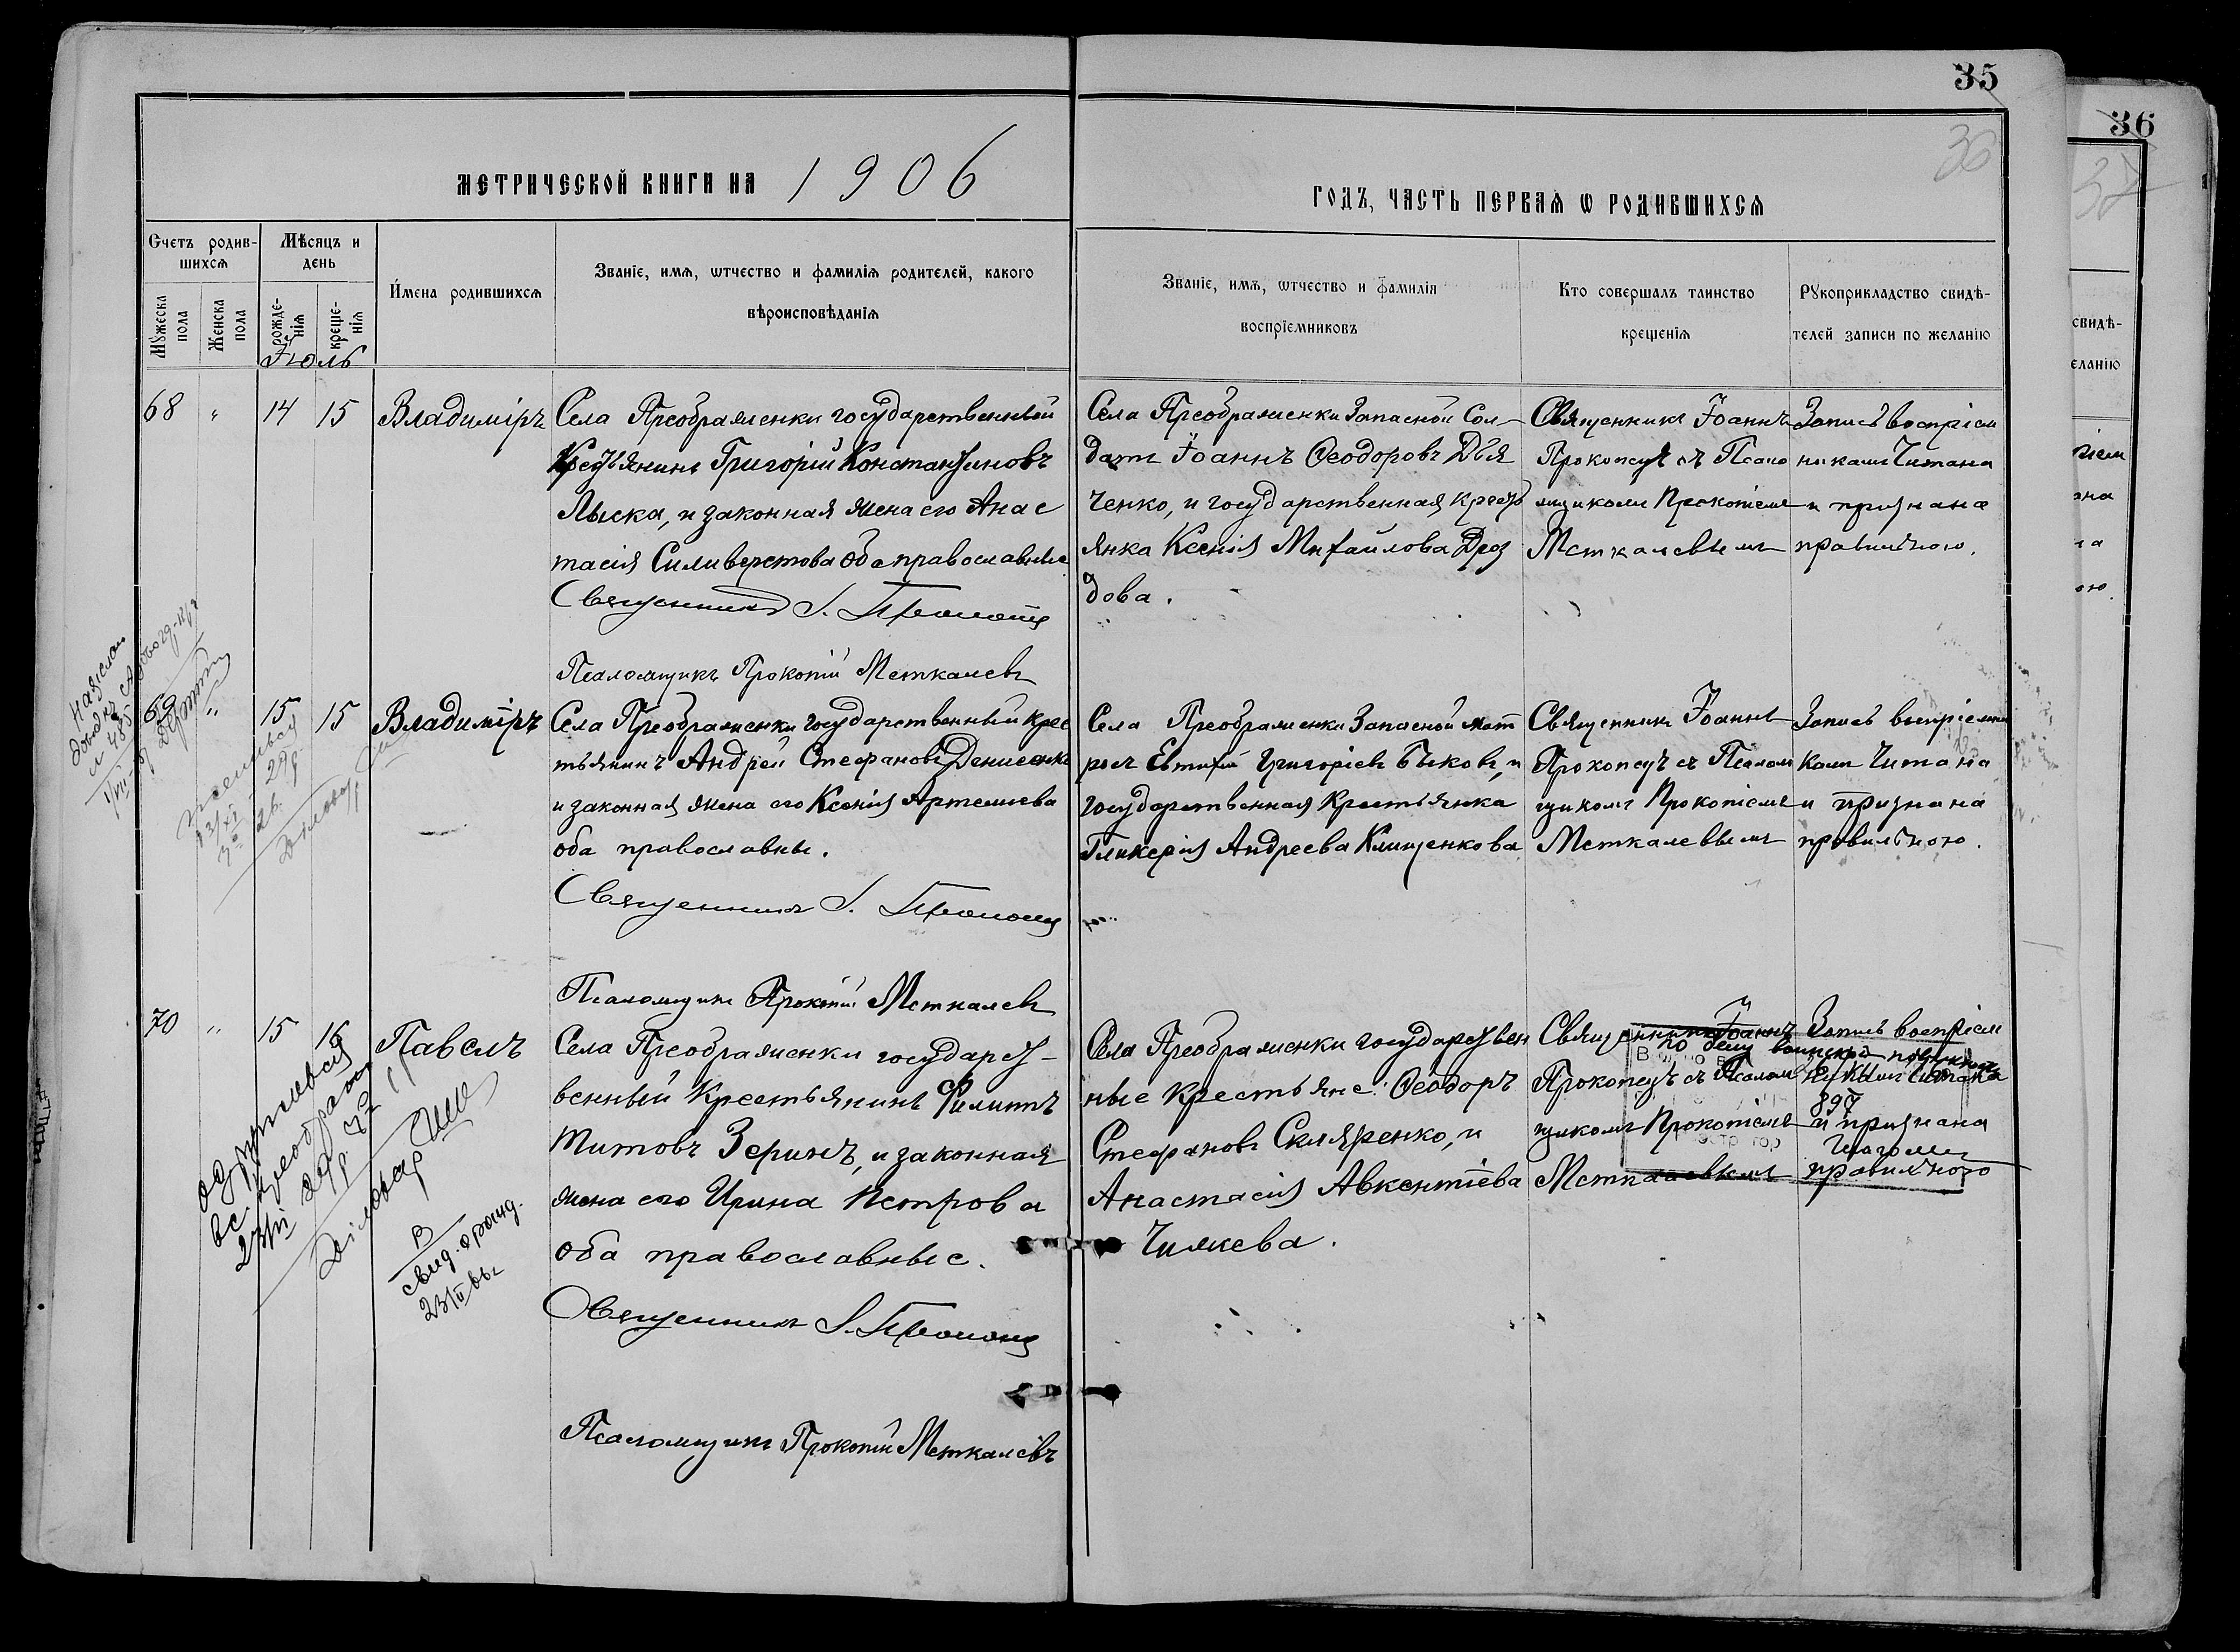 35
36
36
37
МЕТРИЧЕСКОЙ КНИГИ НА 1906
ГОДЪ, ЧАСТЬ ПЕРВАЯ Ѡ РОДИВШИХСѦ
Счетъ родив-
шихсѧ
Мѣсяцъ и
день
Имена родившихсѧ
Званіе, имѧ, ѡтчество и фамиліѧ родителей, какого
вѣроисповѣданіѧ
Мꙋжеска
пола
Женска
пола
рожде-
ніѧ
креще-
ніѧ
Званіе, имѧ, ѡтчество и фамиліѧ
воспріемниковъ
Кто совершалъ таинство
крещеніѧ
Рꙋкоприкладство свидѣ-
телей записи по желанію
свидѣ-
еланію
Іюль
68 " 14 15 Владиміръ
Села Преображенки государственный
Крестьянинъ Григорій Константиновъ
Лыска, и законная жена его Анас
тасія Силиверстова оба православные
Священникъ І. Прокопецъ
Псаломщикъ Прокопій Меткалевъ
Села Преображенки Запасной Сол-
датъ Іоаннъ Ѳеодоровъ Дья
ченко, и государственная кресть
янка Ксенія Михайлова Дроз
дова.
Священникъ Іоаннъ
Прокопецъ съ Псало
мщикомъ Прокопіемъ
Меткалевымъ
Запись воспріем
никами Читана
и признана
правильною.
69 " 15 15 Владиміръ
Села Преображенки государственный крес
тьянинъ Андрей Стефановъ Денисенко
и законная жена его Ксенія Артемиева
оба православны.
Священникъ І. Прокопецъ
Псаломщикъ Прокопій Меткалевъ
Села Преображенки Запасной мат
росъ Евтихій Григоріевъ Быковъ, и
государственная Крестьянка
Гликерія Андреева Клищенкова
Священникъ Іоаннъ
Прокопецъ съ Псалом
щикомъ Прокопіемъ
Меткалевымъ
Запись воспріемни
ками Читана
и признана
правильною.
70 " 15 16 Павелъ
Села Преображенки государст-
венный Крестьянинъ Филиппъ
Титовъ Зеринъ, и законная
жена его Ирина Петрова
оба православные.
Священникъ І. Прокопецъ
Псаломщикъ Прокопій Меткалевъ
Села Преображенки государствен
ные Крестьяне: Ѳеодоръ
Стефановъ Скляренко, и
Анастасія Авксентіева
Чижева.
Священникъ Іоаннъ
Прокопецъ съ Псалом
щикомъ Прокопіемъ
Меткалевымъ
Запись воспріем
никами Читана
и признана
правильною
по делу воинской
897